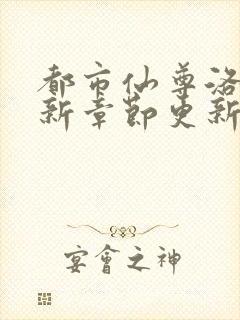 都市仙尊洛
新章節更新
宴會之神